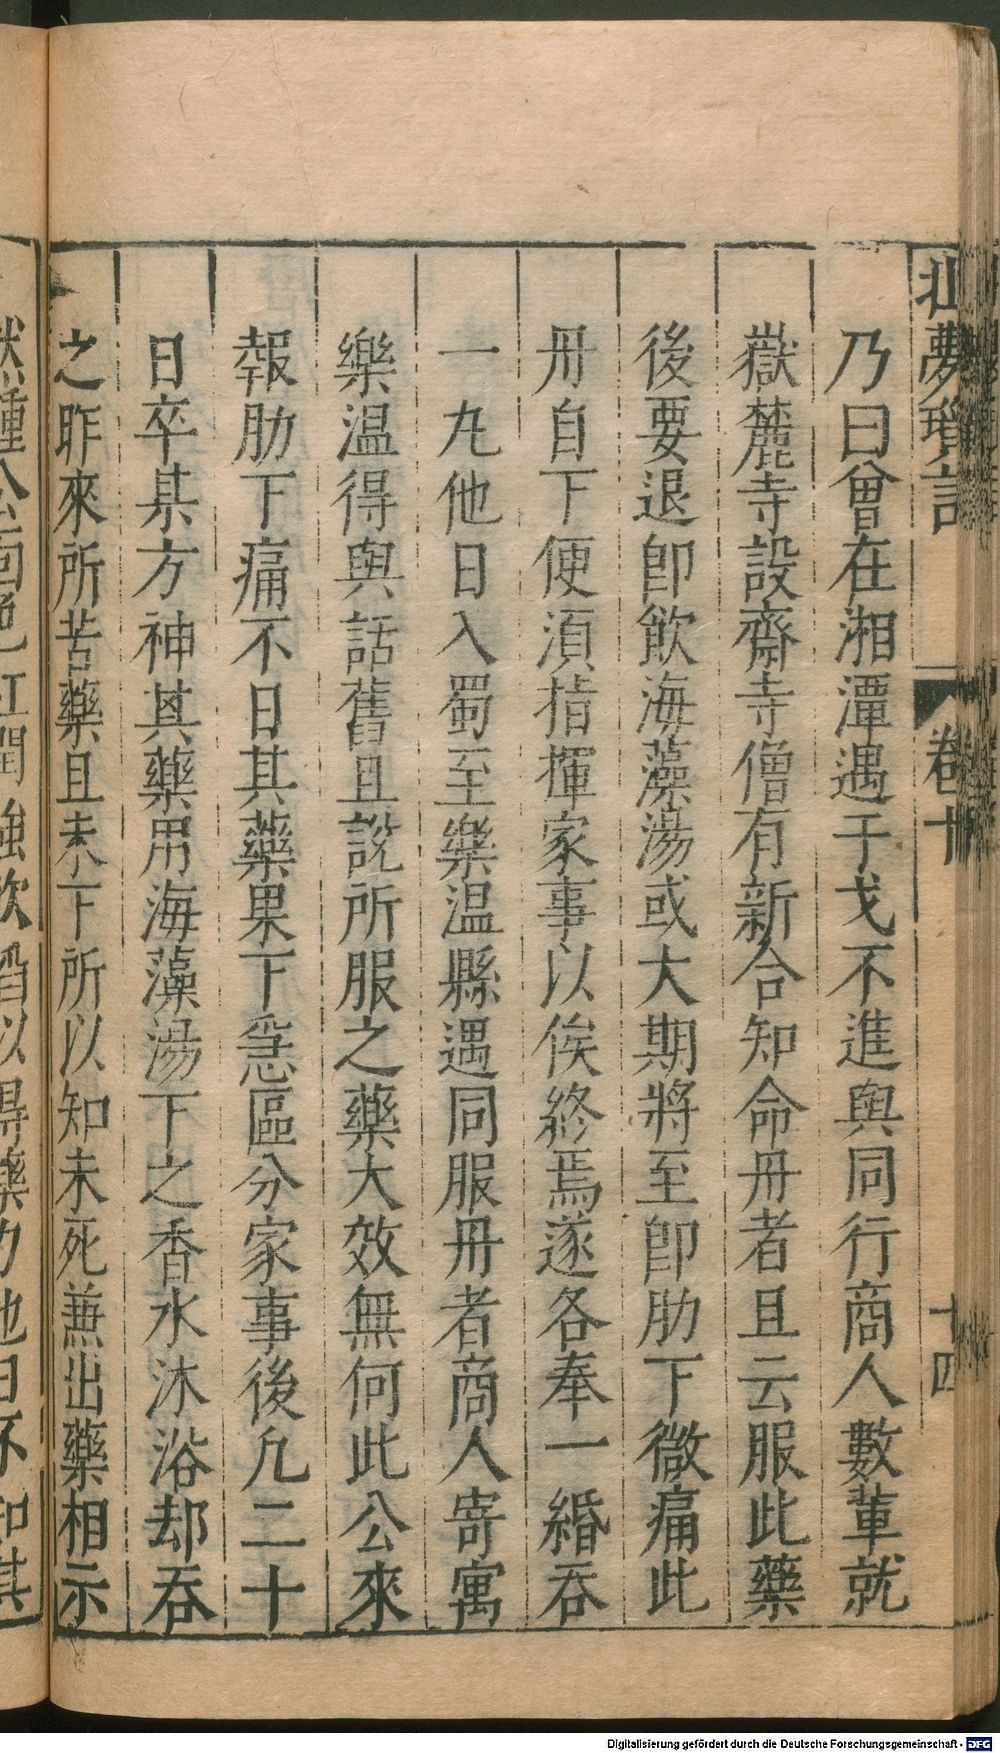 北夢瑣言 卷十 十四
乃曰曾在湘潭遇干戈不進與同行商人數輩就
嶽麓寺設齋寺僧有新合知命丹者且云服此藥
後要退卽飲海藻湯或大期將至卽肋下微痛此
丹自下便須指揮家事以俟終焉遂各奉一緡吞
一丸他日入蜀至樂温縣遇同服丹者商人寄寓
樂温得與話舊且說所服之藥大效無何此公來
報肋下痛不日其藥果下急區分家事後凡二十
日卒某方神其藥用海藻湯下之香水沐浴却吞
之昨來所苦藥且未下所以知未死兼出藥相示
然鍾公面色紅潤強飲啗以得藥力也日不知其
Digitalisierung gefördert durch die Deutsche Forschungsgemeinschaft - DFG